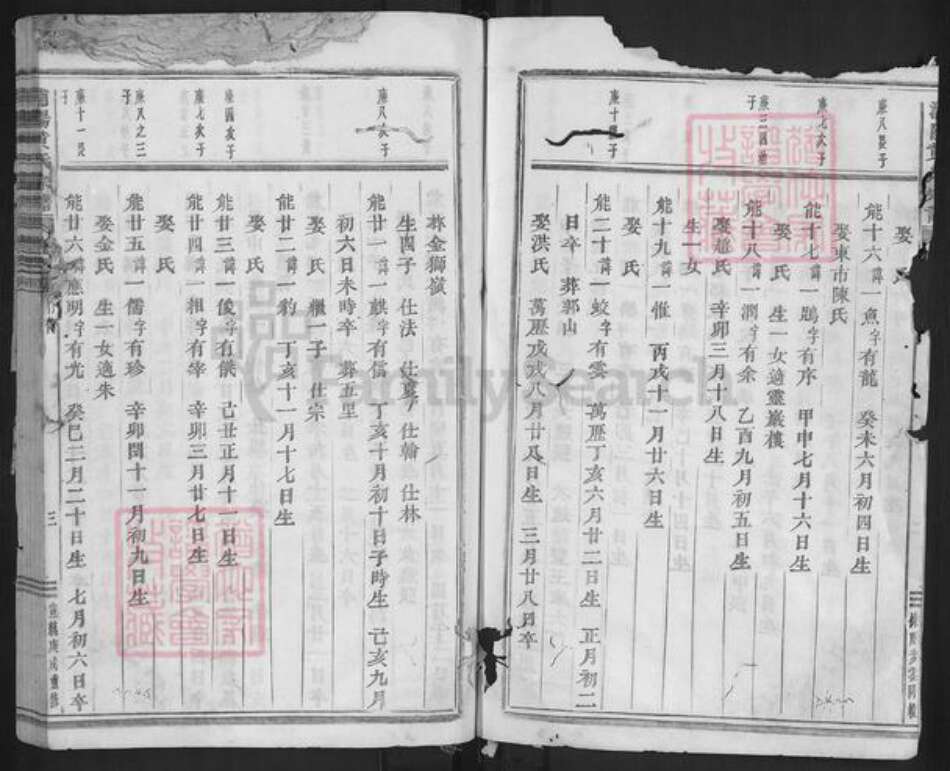 娶 氏
庶八長子
能十六諱一魚字有龍 癸未六月初四日生
娶東市陳氏
庶七次子
能十七諱一鵾字有序 甲申七月十六日生
娶 氏 生一女適靈巖樓
能十八諱一澗字有余 乙酉九月初五日生
娶趙氏 辛卯三月十八日生
生一女
能十九諱一惟 丙戌十一月廿六日生
娶 氏
能二十諱一蛟字有雲 萬歷丁亥六月廿二日生 正月初二
日卒 葬郭山
娶洪氏 萬歷戊戌八月廿八日生 三月廿八日卒
葬金獅嶺
生四子 仕法 仕 仕翰 仕林
庶八次子
能廿一諱一麒字有信 丁亥十月初十日子時生 己亥九月
初六日未時卒 葬五里
娶 氏 繼一子 仕宗
能廿二諱一豹 丁亥十一月十七日生
娶 氏
庶四次子
能廿三諱一俊字有供 己丑正月十一日生
庶七次子
能廿四諱一相字有宰 辛卯三月廿七日生
娶 氏
庶八之三子
能廿五諱一儒字有珍 辛卯閏十一月初九日生
娶金氏 生一女適朱
庶十一長子
能廿六諱應明字有光 癸巳二月二十日生 七月初六日卒
三
FamilySearch